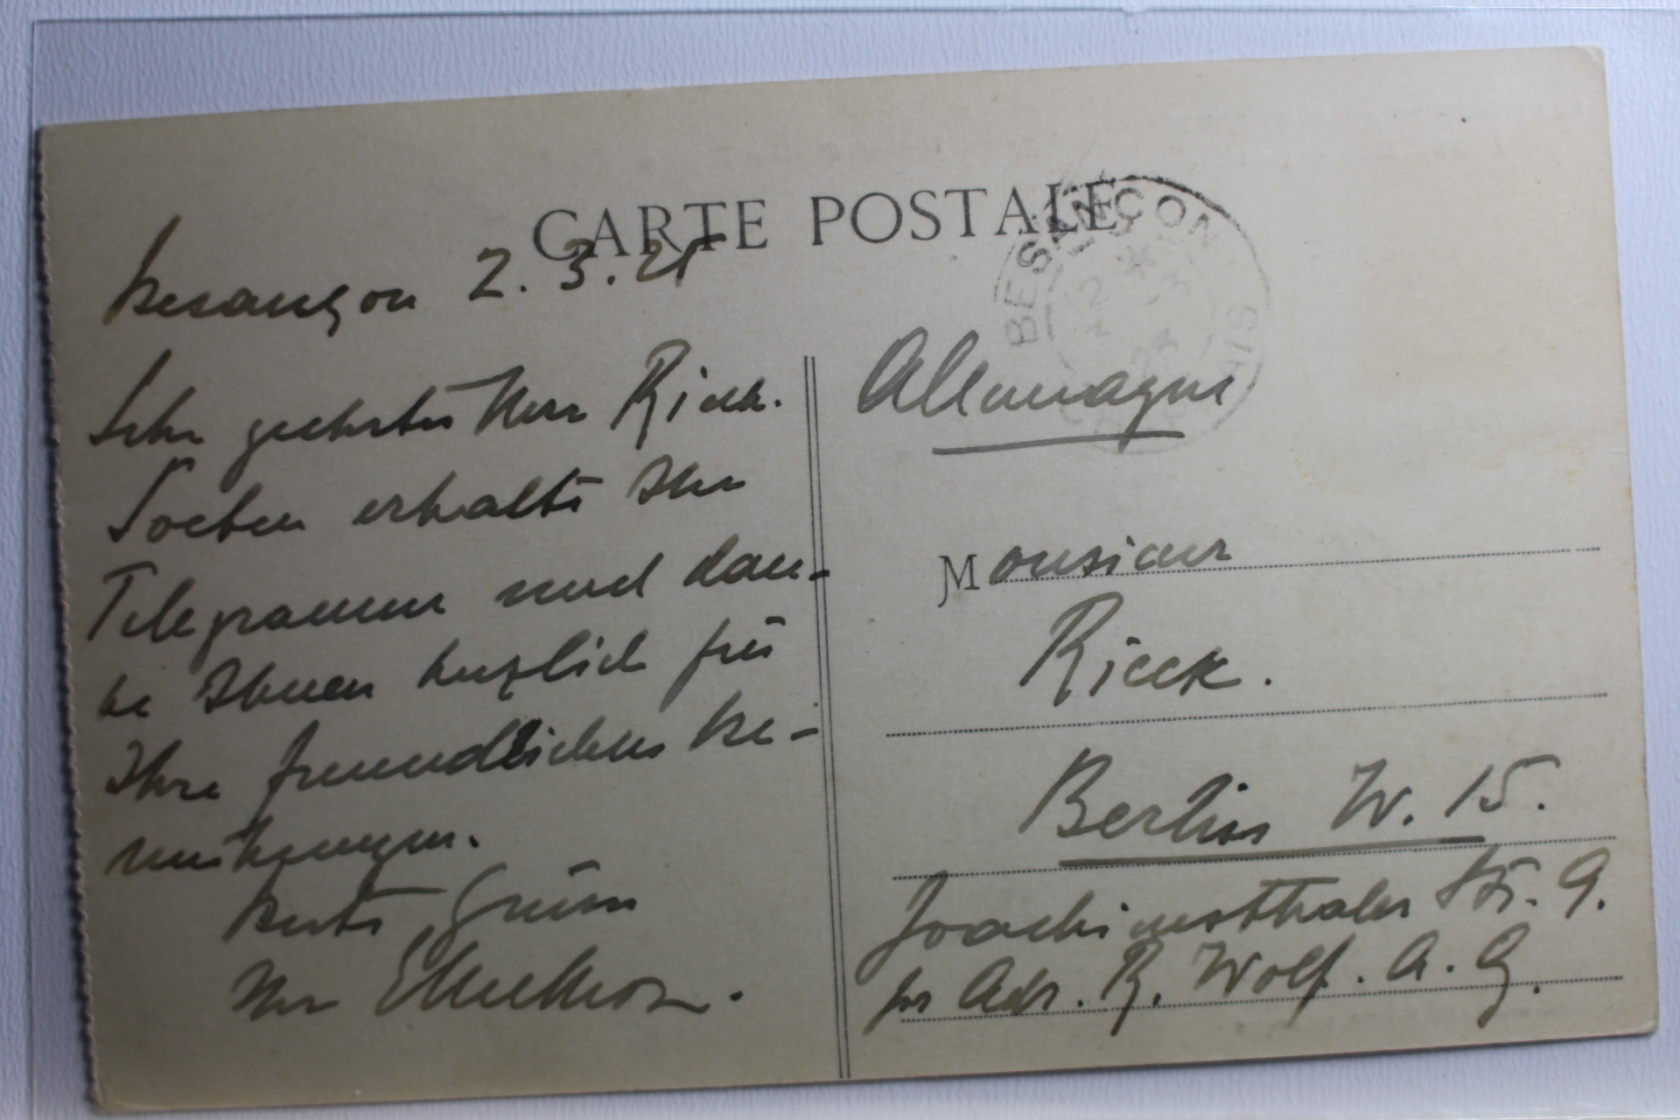 CARTE POSTALE
BESANÇON
Besançon 2.3.25
Sehr geehrter Herr Rieck.
Soeben erhalte Ihr
Telegramm und dan-
ke Ihnen herzlich für
Ihre freundlichen Be-
mühungen.
Beste Grüsse
Ihr
Allemagne
Monsieur
Rieck.
Berlin W. 15.
Joachimsthaler Str. 9.
pr Adr. R. Wolf. A. G.